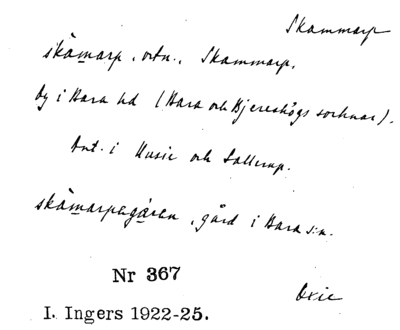 Skammarp
skàmarp, ortn., Skammarp.
by i Bara hd (Bara och Bjereshögs socknar).
Ant. i Husie och Sallerup.
skàmarpagåren, gård i Bara s:n.
Nr 367
Oxie
I. Ingers 1922-25.